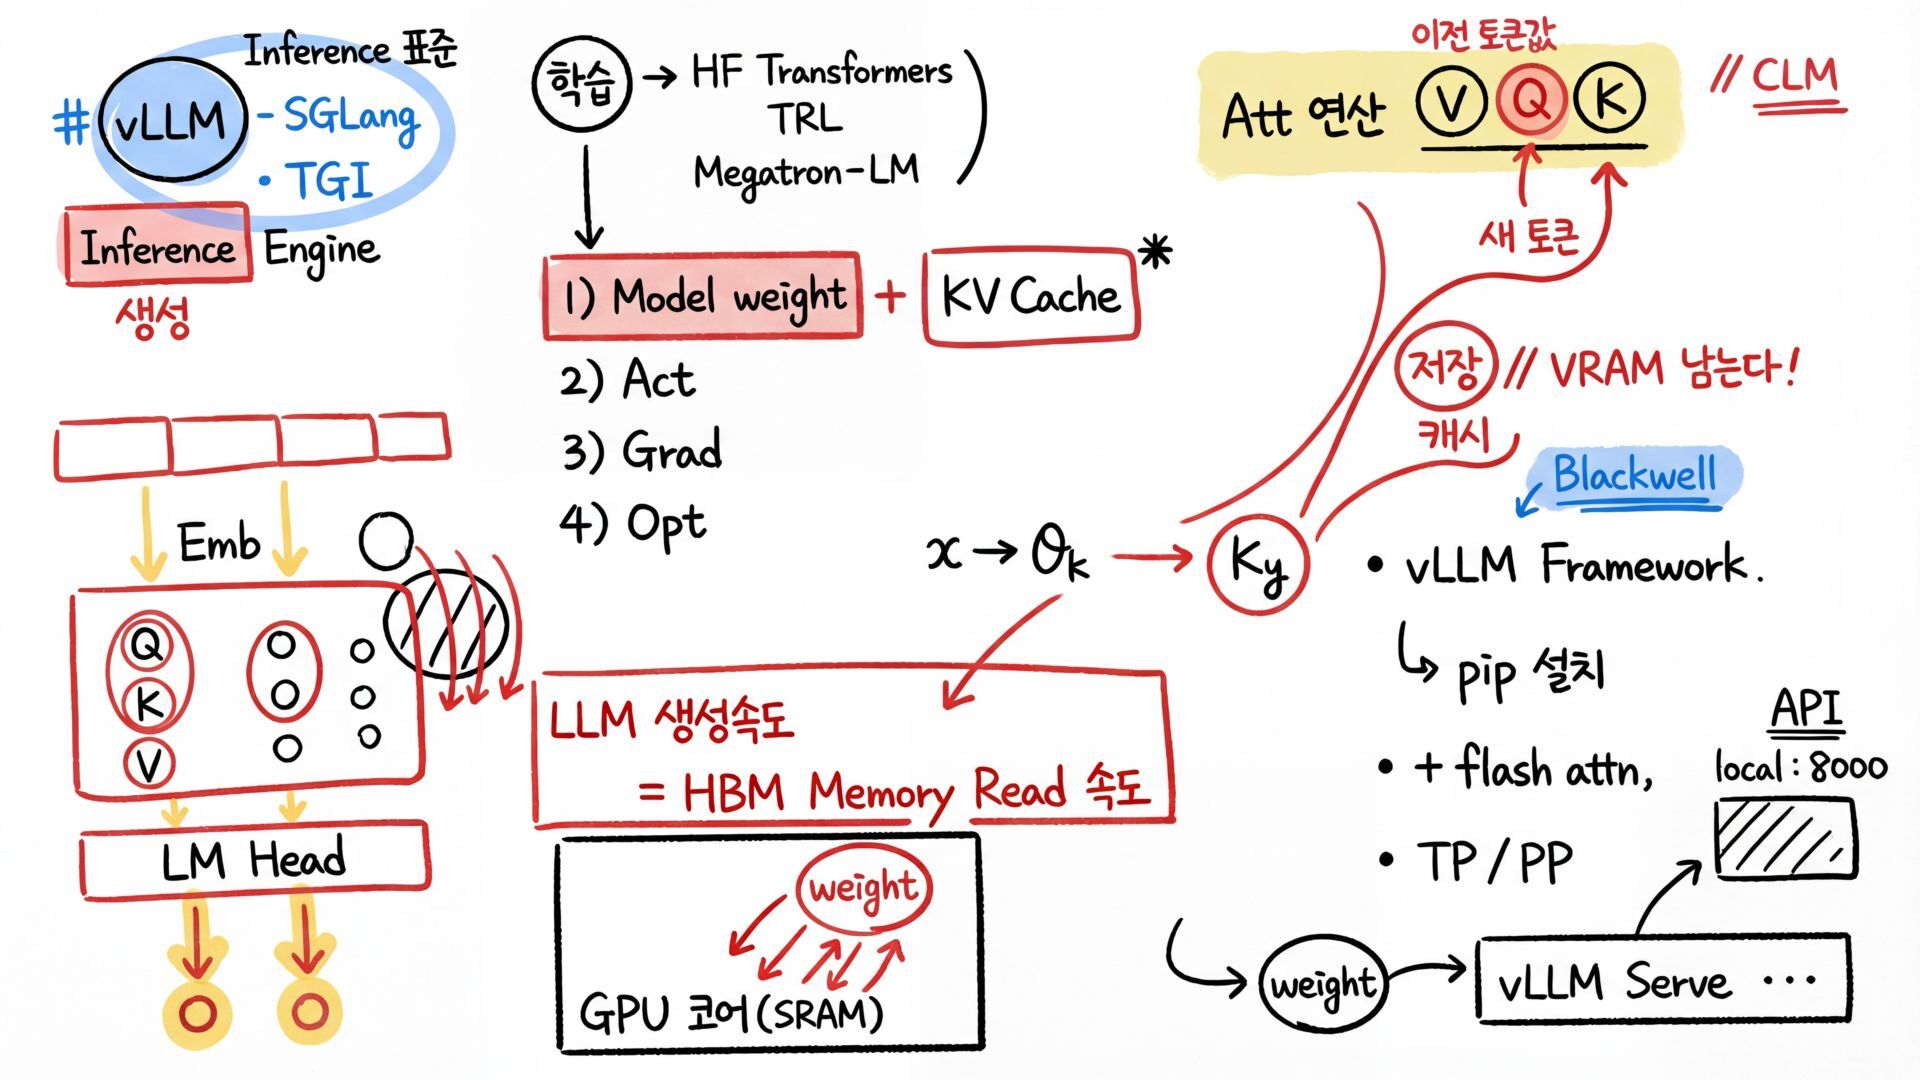 Inference 표준
# vLLM - SGLang
• TGI
Inference Engine
생성
학습 → HF Transformers
TRL
Megatron-LM
1) Model weight + KV Cache *
2) Act
3) Grad
4) Opt
이전 토큰값
Att 연산 V Q K // CLM
새 토큰
저장 // VRAM 남는다!
캐시
Emb
Q
K
V
LM Head
x → θk → Ky
LLM 생성속도
= HBM Memory Read 속도
weight
GPU 코어(SRAM)
Blackwell
• vLLM Framework.
↳ pip 설치
• + flash attn,
• TP / PP
API
local : 8000
weight → vLLM Serve ...